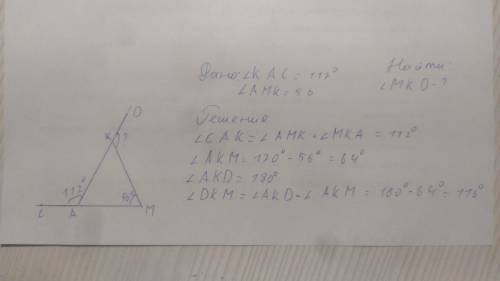 Дано: ∠KAC = 112°
∠AMK = 56
Найти:
∠MKD - ?
Решение
∠CAK = ∠AMK + ∠MKA = 112°
∠AKM = 120° - 56° = 64°
∠AKD = 180°
∠DKM = ∠AKD - ∠AKM = 180° - 64° = 116°
D
K
?
112°
56°
C
A
M